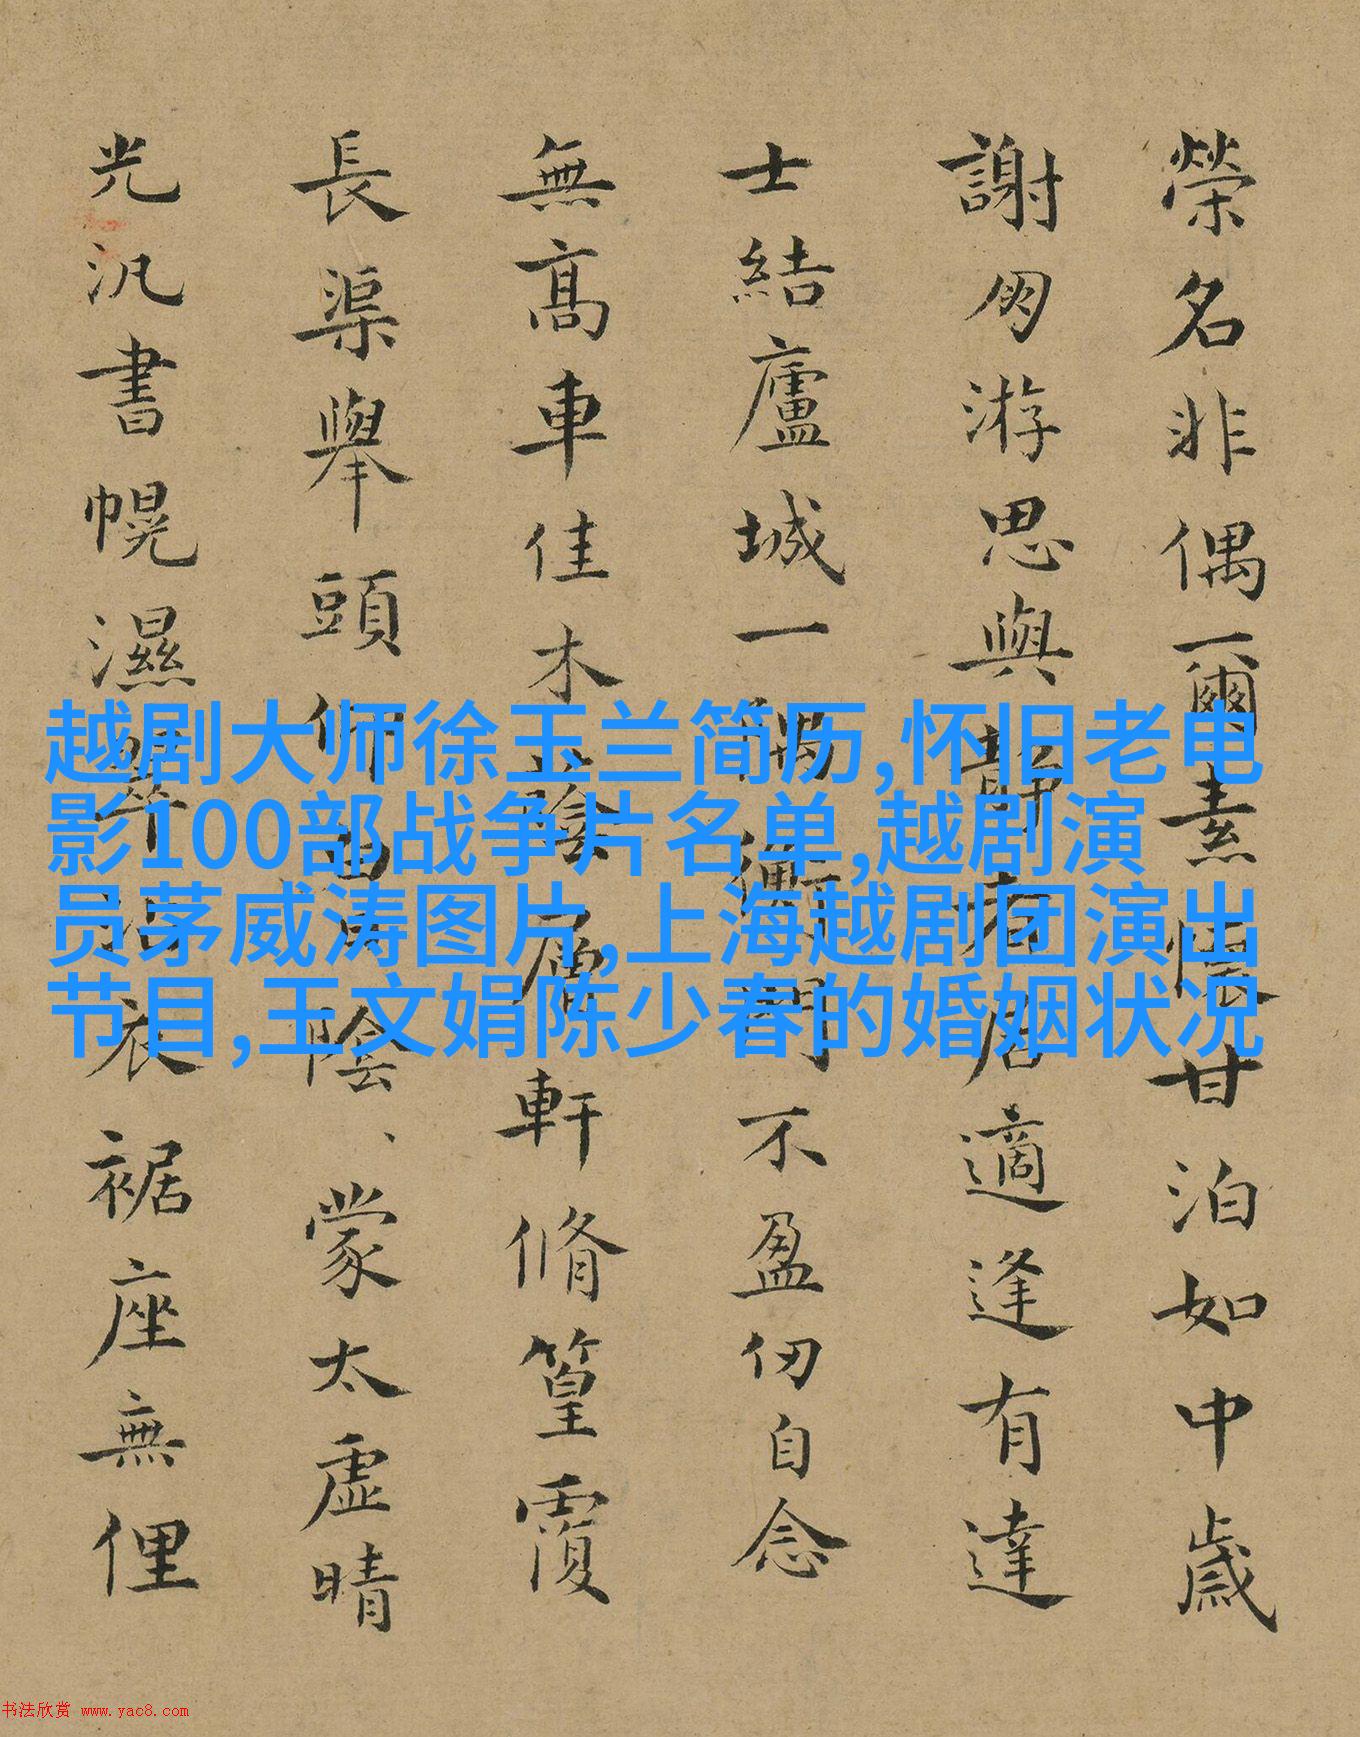 榮名非偶爾素懷甘泊如中歲
謝朋游思與靜者居適逢有達
士結廬城一隅衡門不盈仞自念
無髙車佳木蔭層軒脩篁覆
長渠舉頭仰曾陰、蒙太虛晴
光汎書幌濕翠沾衣裾座無俚
越剧大师徐玉兰简历,怀旧老电
影100部战争片名单,越剧演
员茅威涛图片,上海越剧团演出
节目,王文娟陈少春的婚姻状况
书法欣赏 www.yac8.com